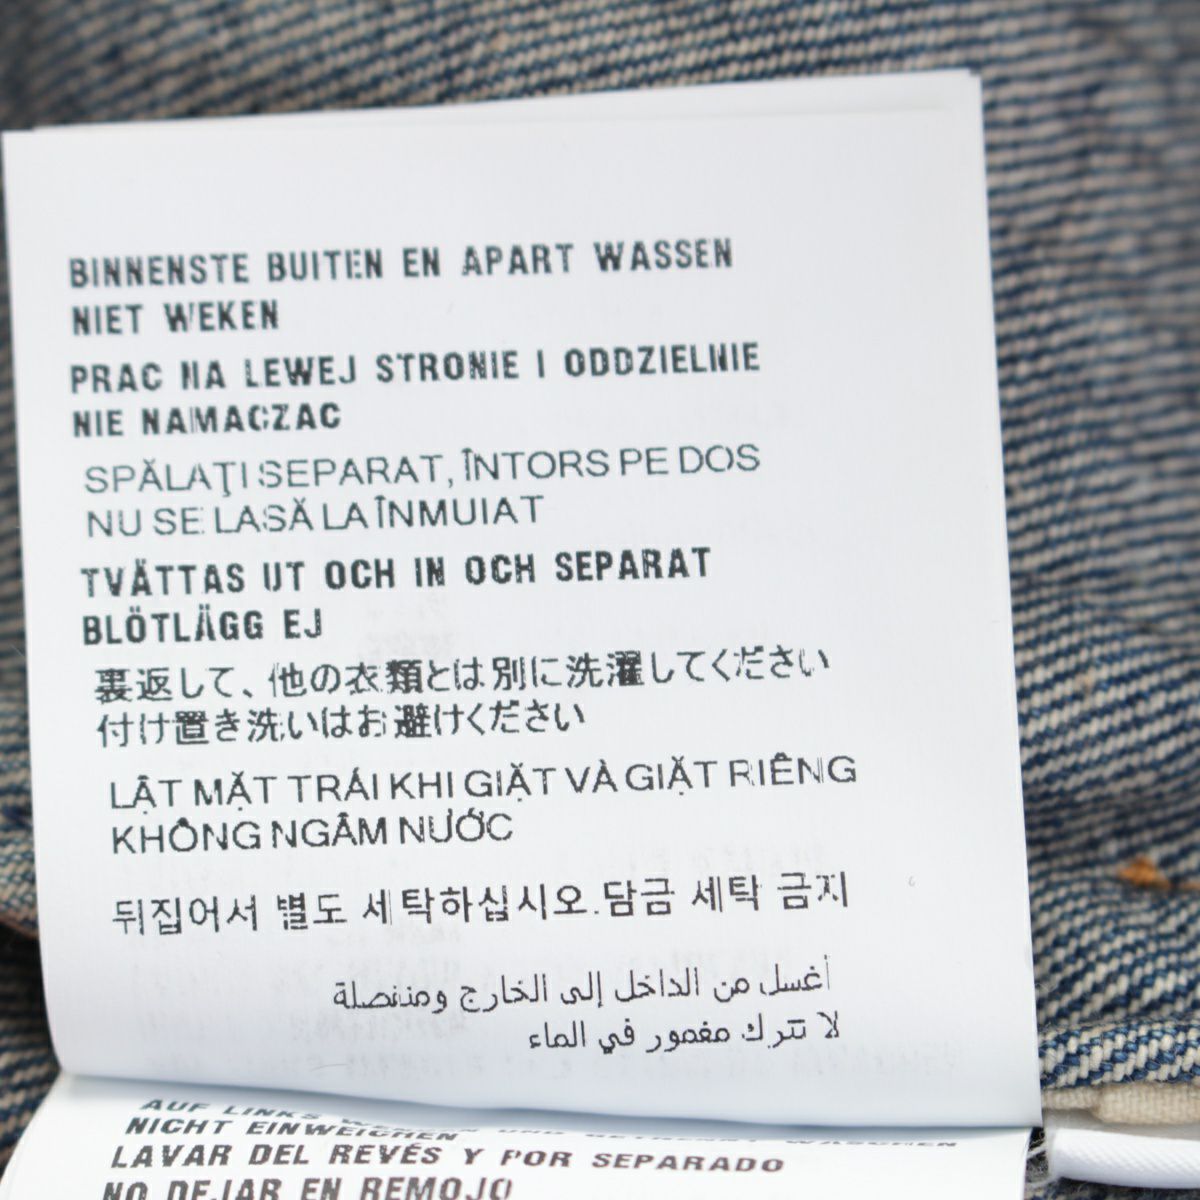 BINNENSTE BUITEN EN APART WASSEN
NIET WEKEN
PRAC NA LEWEJ STRONIE I ODDZIELNIE
NIE NAMACZAC
SPĂLAŢI SEPARAT, ÎNTORS PE DOS
NU SE LASĂ LA ÎNMUIAT
TVÄTTAS UT OCH IN OCH SEPARAT
BLÖTLÄGG EJ
裏返して、他の衣類とは別に洗濯してください
付け置き洗いはお避けください
LẬT MẶT TRÁI KHI GIẶT VÀ GIẶT RIÊNG
KHÔNG NGÂM NƯỚC
뒤집어서 별도 세탁하십시오.담금 세탁 금지
أغسل من الداخل إلى الخارج ومنفصلة
لا تترك مغمور في الماء
AUF LINKS WENDEN UND GETRENNT WASCHEN
NICHT EINWEICHEN
LAVAR DEL REVÉS Y POR SEPARADO
NO DEJAR EN REMOJO